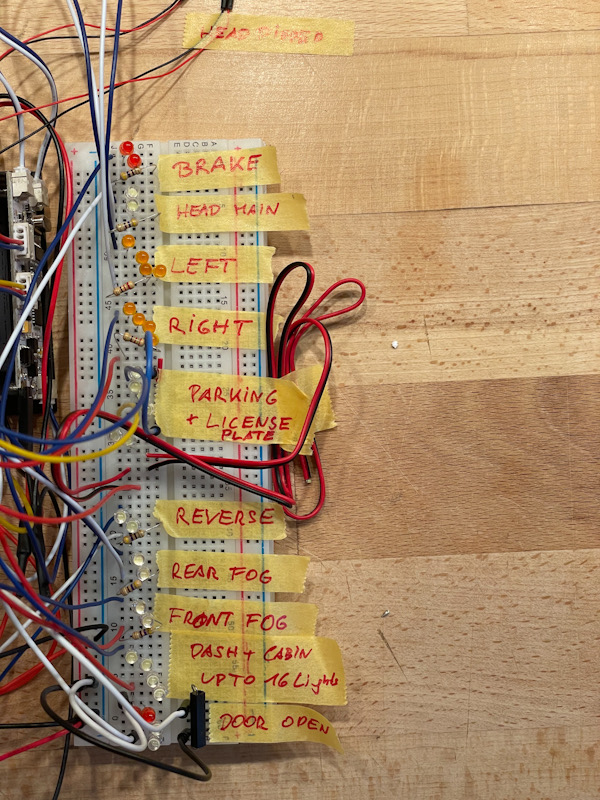 HEAD
BRAKE
HEAD MAIN
LEFT
RIGHT
PARKING
+ LICENSE
PLATE
REVERSE
REAR FOG
FRONT FOG
DASH + CABIN
UP TO 16 Lights
DOOR OPEN